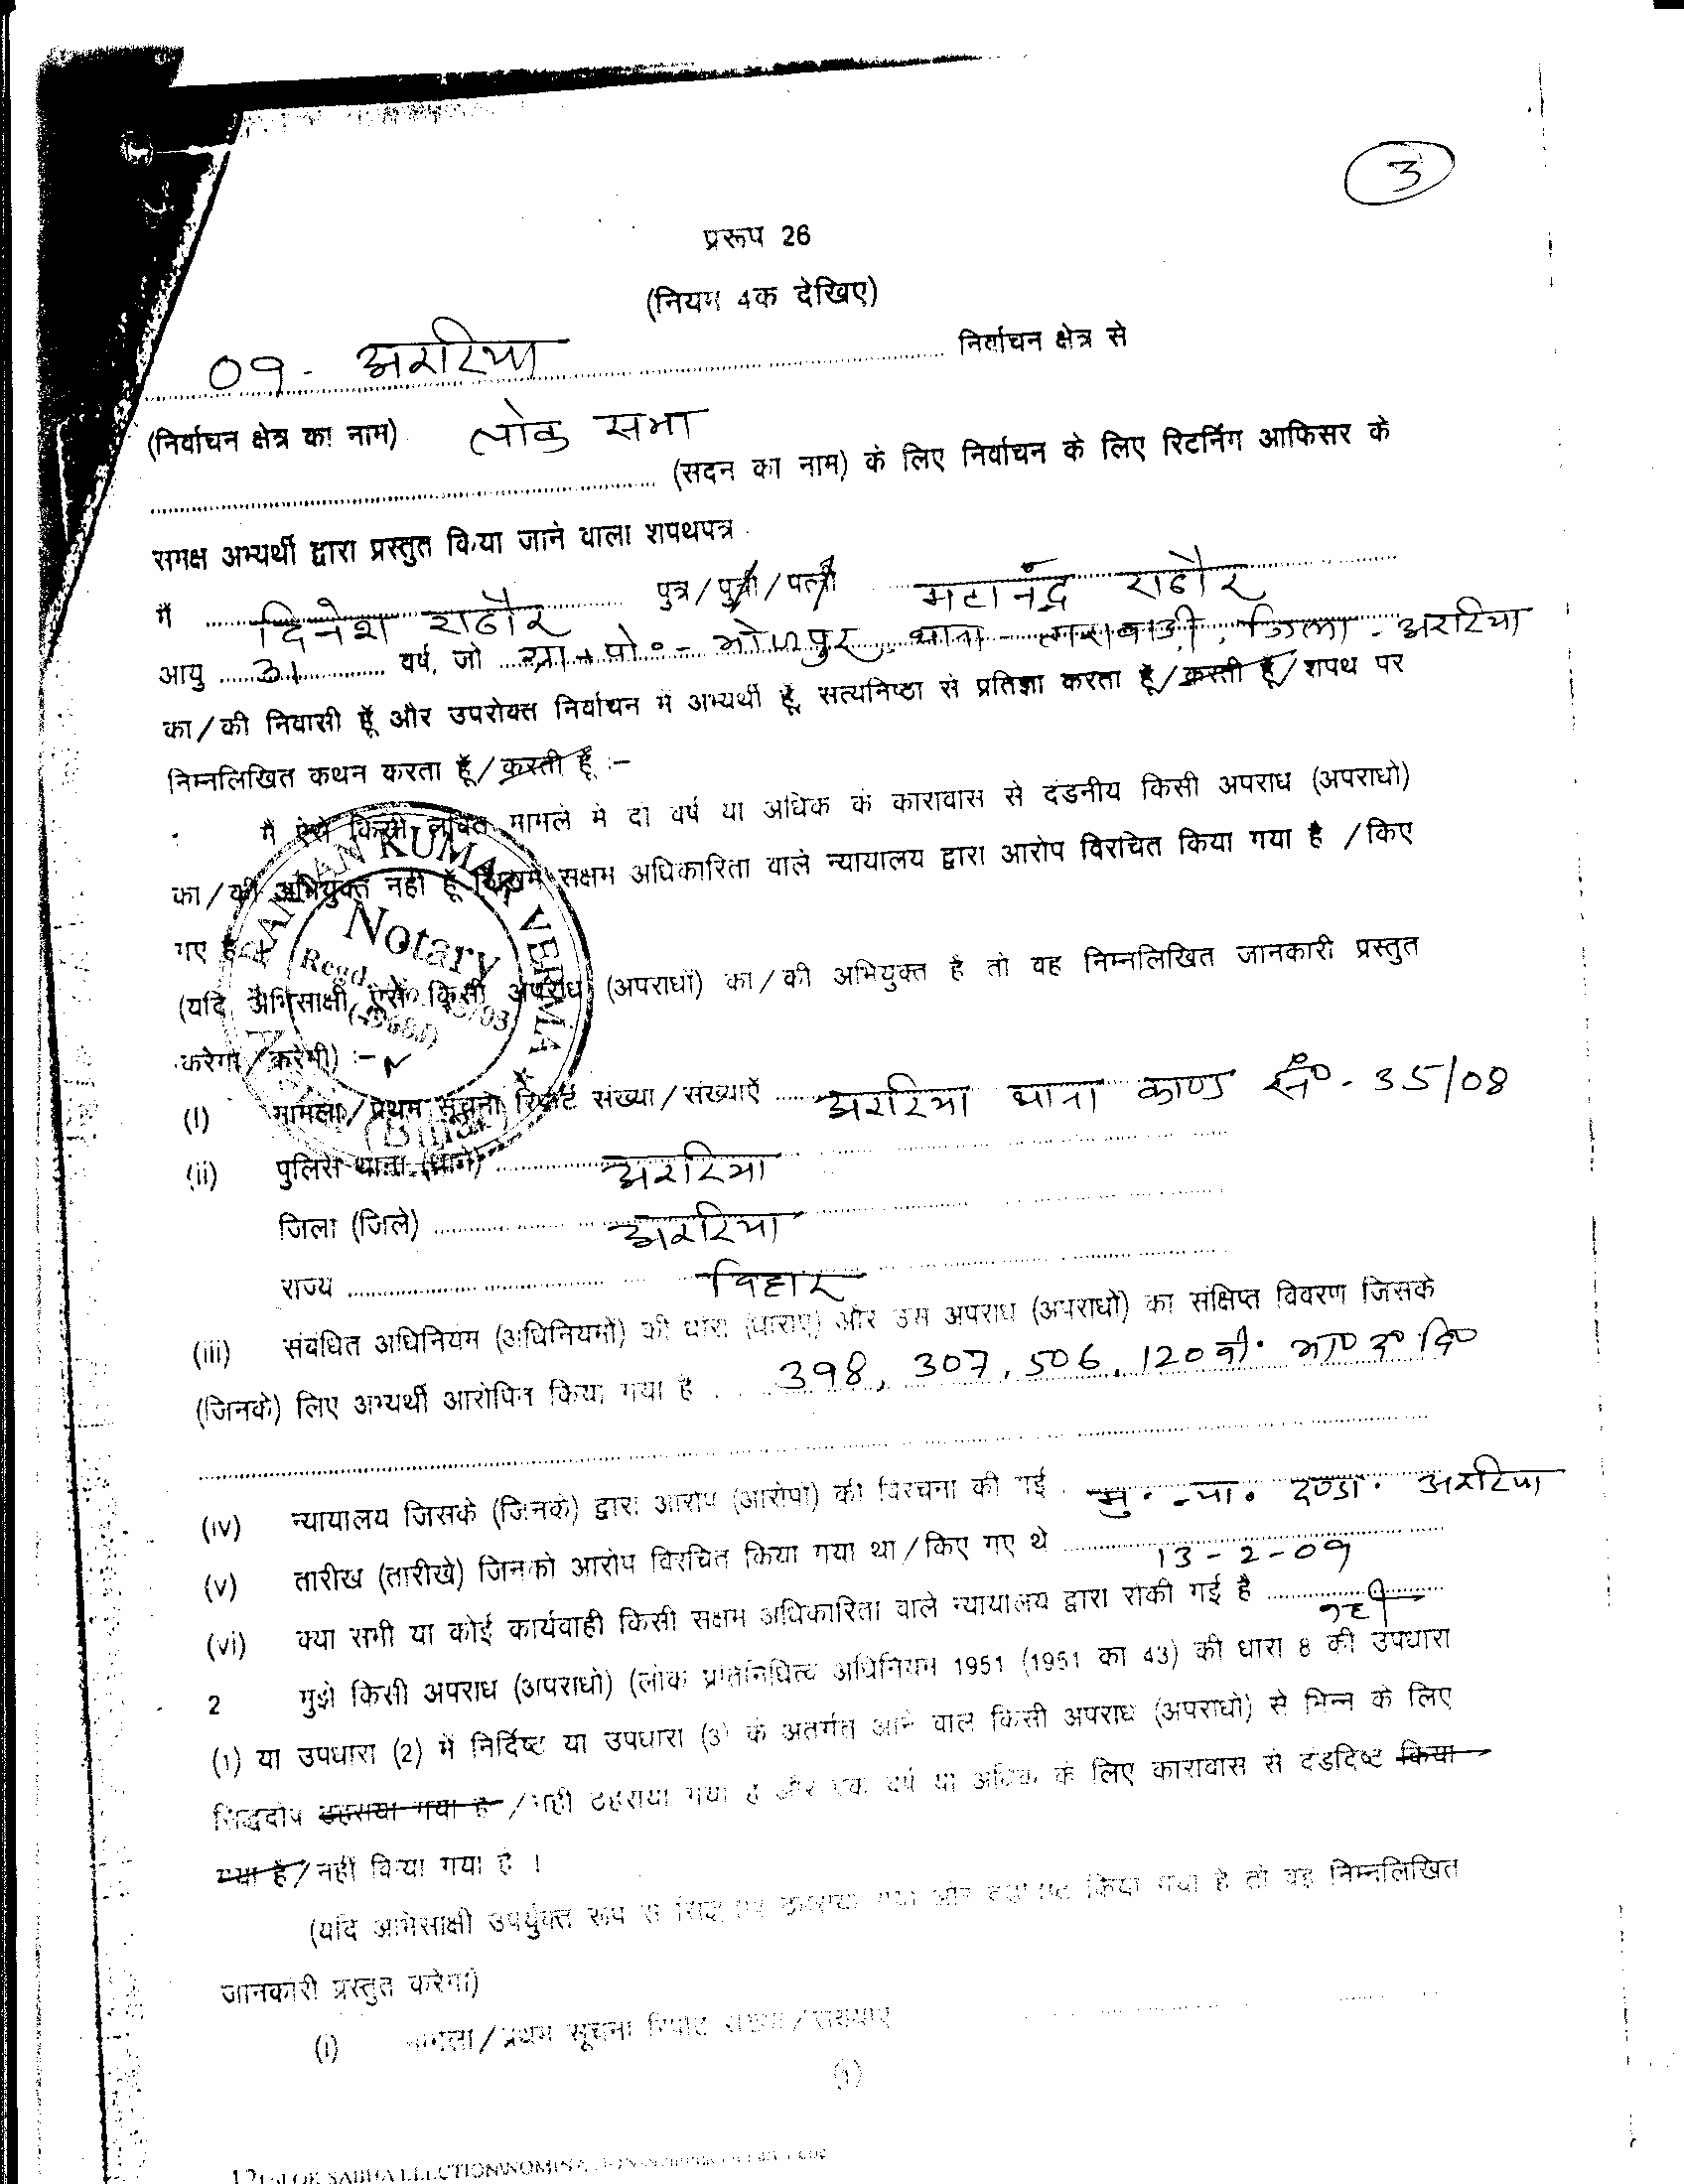 3
प्ररूप 26
(नियम 4क देखिए)
09 - अररिया निर्वाचन क्षेत्र से
(निर्वाचन क्षेत्र का नाम) लोक सभा
(सदन का नाम) के लिए निर्वाचन के लिए रिटर्निंग आफिसर के
समक्ष अभ्यर्थी द्वारा प्रस्तुत किया जाने वाला शपथपत्र
मैं दिनेश राठौर पुत्र/पुत्री/पत्नी राठौर
आयु 31 वर्ष, जो ग्रा+पो०- थाना- जिला- अररिया
का/की निवासी हूँ और उपरोक्त निर्वाचन में अभ्यर्थी हूँ, सत्यनिष्ठा से प्रतिज्ञा करता हूँ/करती हूँ/शपथ पर
निम्नलिखित कथन करता हूँ/करती हूँ :-
मैं ऐसे किसी लंबित मामले में दो वर्ष या अधिक के कारावास से दंडनीय किसी अपराध (अपराधो)
का/की अभियुक्त नहीं हूँ जिसमें सक्षम अधिकारिता वाले न्यायालय द्वारा आरोप विरचित किया गया है /किए
गए हैं
(यदि अभिसाक्षी ऐसे किसी अपराध (अपराधों) का/की अभियुक्त है तो वह निम्नलिखित जानकारी प्रस्तुत
करेगा/करेगी) :-
KUMAR VERMA
Notary
Regd.
(i) मामला/प्रथम सूचना रिपोर्ट संख्या/संख्याएँ अररिया थाना काण्ड सं० - 35/08
(ii) पुलिस थाना (थाने) अररिया
जिला (जिले) अररिया
राज्य बिहार
(iii) संबंधित अधिनियम (अधिनियमों) की धारा (धाराएं) और उस अपराध (अपराधों) का संक्षिप्त विवरण जिसके
(जिनके) लिए अभ्यर्थी आरोपित किया गया है 398, 307, 506, 120 बी. भा० द० वि०
(iv) न्यायालय जिसके (जिनके) द्वारा आरोप (आरोपो) की विरचना की गई मु. न्या. दण्डा. अररिया
(v) तारीख (तारीखे) जिनको आरोप विरचित किया गया था/किए गए थे 13-2-09
(vi) क्या सभी या कोई कार्यवाही किसी सक्षम अधिकारिता वाले न्यायालय द्वारा रोकी गई है नहीं
2 मुझे किसी अपराध (अपराधो) (लोक प्रतिनिधित्व अधिनियम 1951 (1951 का 43) की धारा 8 की उपधारा
(1) या उपधारा (2) में निर्दिष्ट या उपधारा (3) के अतर्गत आने वाले किसी अपराध (अपराधो) से भिन्न के लिए
सिद्धदोष ठहराया गया है /नहीं ठहराया गया है और एक वर्ष या अधिक के लिए कारावास से दंडदिष्ट किया
गया है/नहीं किया गया है ।
(यदि अभिसाक्षी उपर्युक्त रूप से किया गया है तो वह निम्नलिखित
जानकारी प्रस्तुत करेगा)
(i) मामला/प्रथम सूचना रिपोर्ट संख्या/संख्याएं
(1)